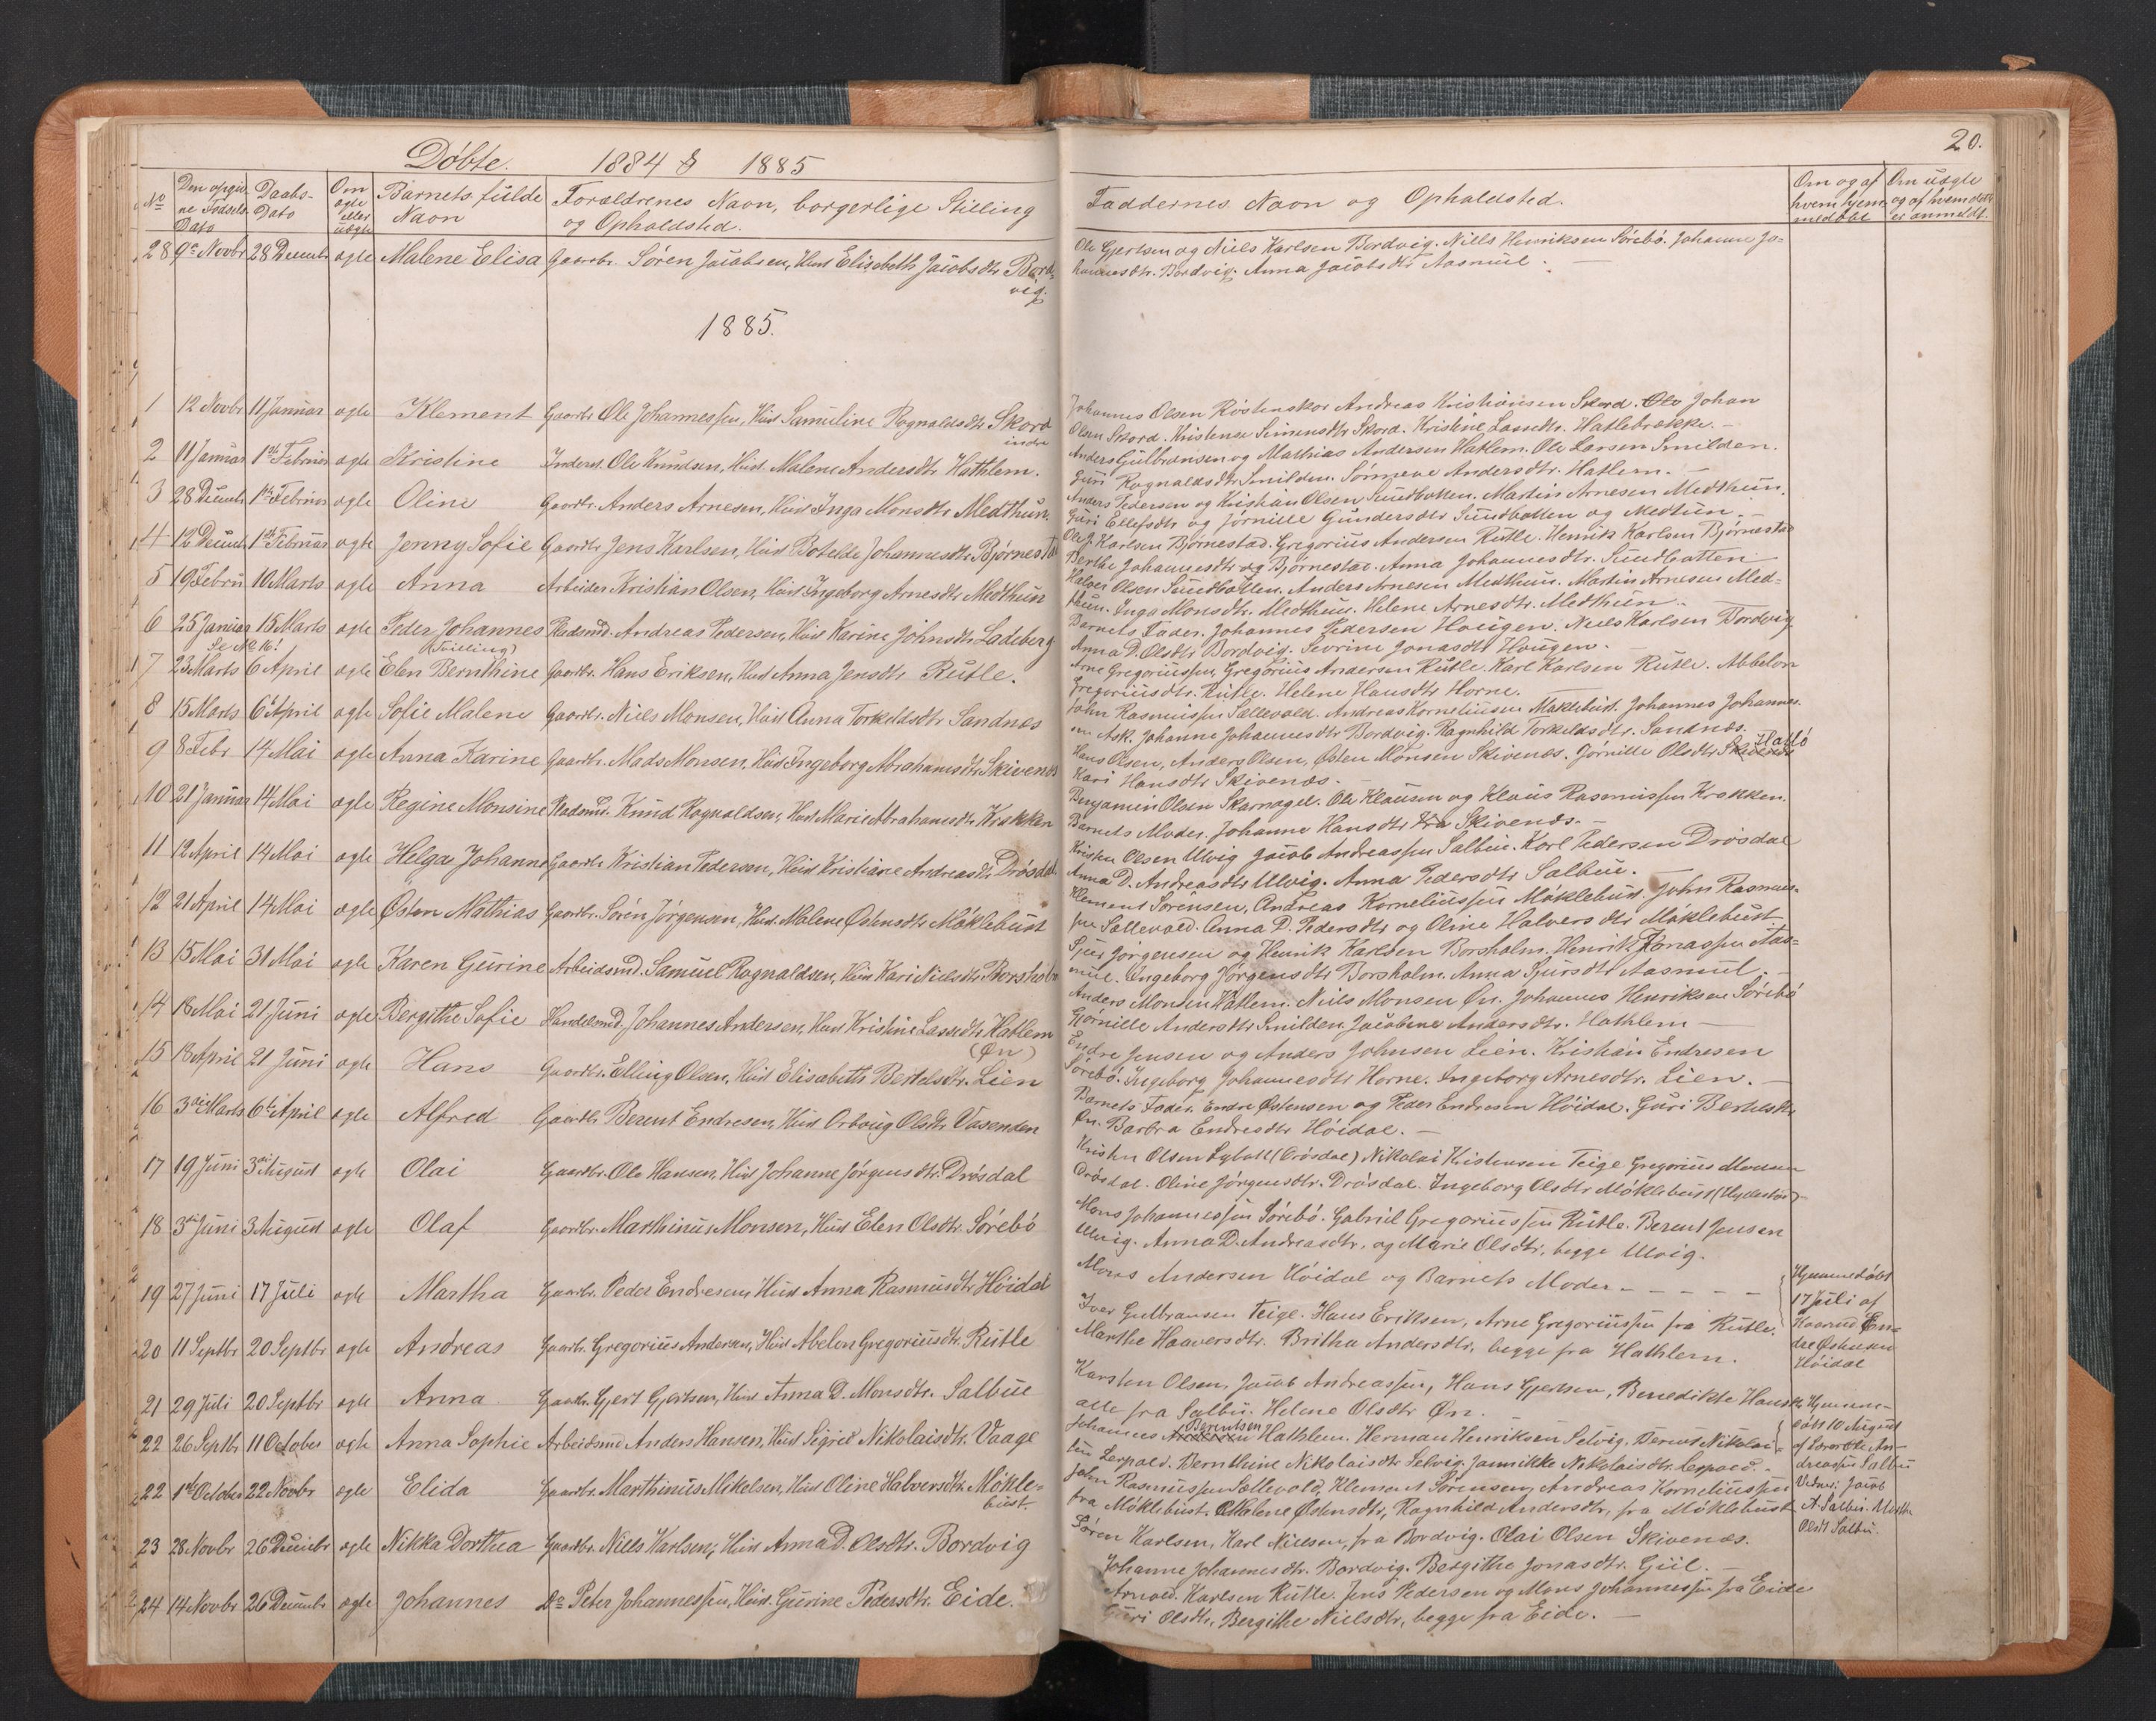 Döbte. 1884 & 1885
No
Den opgiv-
ne Födsels-
Dato
Daabs-
Dato
Om
ægte
eller
uægte
Barnets fulde
Navn
Forældrenes Navn, borgerlige Stilling
og Opholdsted.
28 9de Novbr 28 Decembr ægte Malene Elisa Gaardbr. Sören Jacobsen, Hust Elisabeth Jacobsdtr Bord-
vig.
1885.
1 12 Novbr 11 Januar ægte Klement Gaardbr Ole Johannessen, Hust Samueline Rognaldsdtr Skord
indre
2 11 Januar 1ste Februar ægte Kristine Inderst. Ole Knudsen, Hust. Malene Andersdtr Hathlem.
3 28 Decembr 1ste Februar ægte Oline Gaardbr. Anders Arnesen, Hust Inga Monsdtr Medthun.
4 12 Decemb 1ste Februar ægte Jenny Sofie Gaardbr Jens Karlsen, Hust Botilde Johannesdtr Björnestad
5 19 Febru 10 Marts ægte Anna Arbeider Kristian Olsen, Hust Ingeborg Arnesdtr Medthun
6 25 Januar 15 Marts ægte Peder Johannes Pladsmd. Andreas Pedersen, Hust Karine Johnsdtr Ladeberg
Se No 16! (Tvilling)
7 23 Marts 6 April ægte Elen Bernthine Gaardbr. Hans Eriksen, Hust Anna Jensdtr Rutle.
8 15 Marts 6te April ægte Sofie Malene Gaardbr. Niels Monsen, Hust Anna Torkeldsdtr Sandnes
9 8 Febr 14 Mai ægte Anna Karine Gaardbr. Mads Monsen, Hust Ingeborg Abrahamsdtr Skivenes
10 21 Januar 14 Mai ægte Regine Monsine Pladsmd. Knud Rognaldsen, Hust Marie Abrahamsdtr Krakken
11 12 April 14 Mai ægte Helga Johanne Gaardbr Kristian Pedersen, Hust Kristiane Andreasdtr Drösdal
12 21 April 14 Mai ægte Østen Mathias Gaardbr. Sören Jörgensen, Hust. Malene Østensdtr Möklebust
13 15 Mai 31 Mai ægte Karen Gurine Arbeidsmd. Samuel Rognaldsen, Hust Kari Nielsdtr Borsholm
14 18 Mai 21 Juni ægte Bergithe Sofie Handelsmd. Johannes Andersen, Hust Kristine Lassedtr Hatlem
(Øn)
15 18 April 21 Juni ægte Hans Gaardbr. Elling Olsen, Hust Elisabeth Bertelsdtr. Lien
16 3die Marts 6te April ægte Alfred Gaardbr Berent Endresen, Hust Orboug Olsdtr Vasenden
17 19 Juni 3die August ægte Olai Gaardbr. Ole Hansen, Hust Johanne Jörgensdtr. Drösdal
18 3die Juni 3 August ægte Olaf Gaardbr. Marthinus Monsen, Hust Elen Olsdtr. Sörebö
19 27 Juni 17 Juli ægte Martha Gaardbr. Peder Endresen, Hust Anna Rasmusdtr Höidal
20 11 Septbr 20 Septbr ægte Andreas Gaardbr. Gregorius Andersen, Hust Abelon Gregoriusdtr. Rutle
21 29 Juli 20 Septbr ægte Anna Gaardbr. Gjert Gjertsen, Hust Anna D. Monsdtr. Salbue
22 26 Septbr 11 October ægte Anna Sophie Arbeidsmd Anders Hansen, Hust Sigrid Nikolaisdtr. Vaage
22 1ste October 22 Novbr ægte Elida Gaardbr. Marthinus Mikelsen, Hust Oline Halversdtr. Mökle-
bust.
23 28 Novbr 26 Decembr ægte Nikka Dorthea Gaardbr. Niels Karlsen, Hust Anna D. Olsdtr. Bordvig
24 14 Novbr 26 Decembr ægte Johannes Do Peter Johannessen, Hust. Gurine Pedersdtr. Eide.
20.
Faddernes Navn og Opholdsted.
Om og af
hvem hjem-
medöbt
Om uægte
og af hvem dette
er anmeldt.
Ole Gjertsen og Niels Karlsen Bordvig. Niels Henriksen Sörebö. Johanne Jo-
hannesdtr. Bordvig. Anna Jacobsdtr Aasmul.
Johannes Olsen Röstenskor Andreas Kristiansen Skord. Ole Johan
Olsen Skord. Kristense Simensdtr Skord. Kristine Lassedtr. Hatlebrække.
Anders Gulbransen og Mathias Andersen Hatlem. Ole Larsen Smilden.
Guri Rognaldsdtr Smilden. Sönneve Andersdtr. Hatlem.
Anders Pedersen og Kristian Olsen Sundbotten. Martin Arnesen Medthun.
Guri Ellefsdtr og Jörnille Gundersdtr Sundbotten og Medtun.
Ole J. Karlsen Björnestad. Gregorius Andersen Rutle. Henrik Karlsen Björnestad
Berthe Johannesdtr og Björnestad. Anna Johannesdtr. Sundbotten
Halver Olsen Sundbotten. Anders Arnesen Medthun. Martin Arnesen Med-
thun. Inga Monsdtr. Medthun. Helene Arnesdtr. Medthun.
Barnets Fader. Johannes Pedersen Hougen. Niels Karlsen Bordvig
Anna D. Olsdtr Bordvig. Severine Jonasdtr Hougen.
Arne Gregoriussen, Gregorius Andersen Rutle. Karl Karlsen Rutle. Abbelon
Gregoriusdtr. Rutle. Helene Hansdtr Horne.
John Rasmussen Sællevold. Andreas Korneliussen Möklebust. Johannes Johannes-
sen Ask. Johanne Johannesdtr Bordvig. Ragnhild Torkeldsdtr. Sandnes.
Hans Olsen, Anders Olsen, Østen Monsen Skivenes. Jörnille Olsdtr Skivenes Hatlö
Kari Hansdtr Skivenes.
Benjamin Olsen Skarnagel. Ole Klausen og Klaus Rasmussen Krakken.
Barnets Moder. Johanne Hansdtr fra Skivenes.
Kristen Olsen Ulvig Jacob Andreassen Salbue. Karl Pedersen Drösdal
Anna D. Andreasdtr Ulvig. Anna Pedersdtr Salbue.
Klement Sörensen, Andreas Korneliussen Möklebust John Rasmus-
sen Sællevold. Anna D. Pedersdtr og Oline Halversdtr Möklebust
Sjur Jörgensen og Henrik Karlsen Borsholm. Henrik Jonassen Aas-
mul. Ingeborg Jörgensdtr Borsholm. Anna Sjursdtr Aasmul.
Anders Monsen Hatlem. Niels Monsen Øn. Johannes Henriksen Sörebö
Gjörnille Andersdtr Smilden. Jacobine Andersdtr. Hathlem
Endre Jensen og Anders Johnsen Lien. Kristian Endresen
Sörebö. Ingeborg Johannesdtr Horne. Ingeborg Arnesdtr. Lien.
Barnets Fader. Endre Østensen og Peder Endresen Höidal. Guri Berthesdtr
Øn. Barbra Endresdtr Höidal.
Kristen Olsen (Drösdal) Nikolai Kristensen Teige Gregorius Monsen
Drösdal. Oline Jörgensdtr. Drösdal. Ingeborg Olsdtr Möklebust
Mons Johannessen Sörebö. Gabriel Gregoriussen Rutle. Berent Jensen
Ulvig. Anna D. Andreasdtr, og Marie Olsdtr, begge Ulvig.
Mons Andersen Höidal og Barnets Moder
Hjemmedöbt
17 Juli af
Endre Østensen
Höidal
Iver Gulbransen Teige. Hans Eriksen, Arne Gregoriussen fra Rutle.
Marthe Haaversdtr. Britha Andersdtr, begge fra Hathlem.
Karsten Olsen, Jacob Andreassen, Hans Gjertsen, Benedikte Hansdtr
alle fra Salbu. Helene Olsdtr Øn.
Hjemme-
döbt 10 August
af An-
dreassen Salbu
Vidner: Jacob
A. Salbu. Marthe
Olsdt Salbu.
Johannes Berentsen Hathlem. Herman Henriksen Selvig. Berent Nikolai-
sen Lespoed. Bernthine Nikolaisdtr Selvig. Jannikke Nikolaisdtr. Lespoed.
John Rasmussen Sællevold, Klement Sörensen, Andreas Korneliussen
fra Möklebust. Malene Østensdtr, Ragnhild Andersdtr, fra Möklebust
Sören Karlsen, Karl Nielsen, fra Bordvig. Olai Olsen Skivenes.
Johanne Johannesdtr. Bordvig. Bergithe Jonasdtr. Giil.
Arnold Karlsen Rutle. Jens Pedersen og Mons Johannessen fra Eide
Guri Olsdtr, Bergithe Nielsdtr, begge fra Eide.